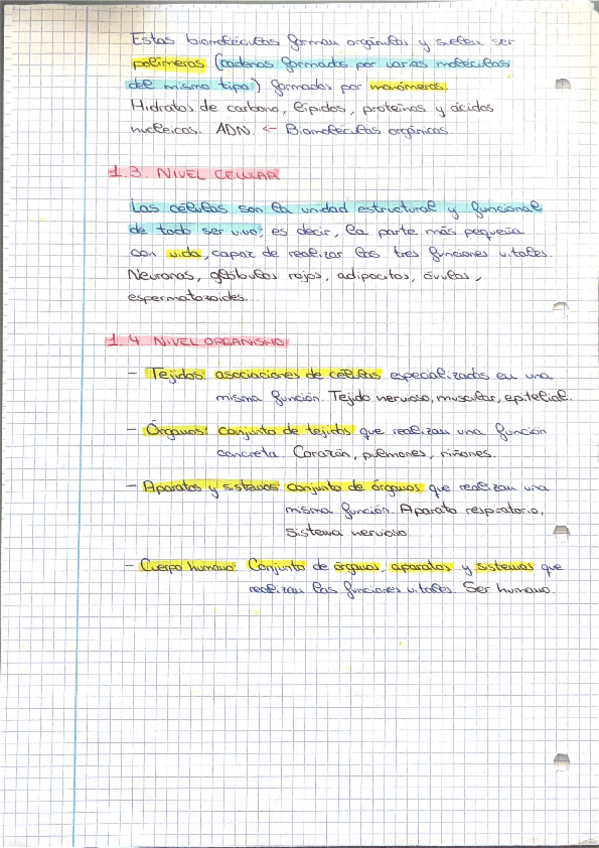 Estas biomoléculas forman orgánulos y suelen ser
polímeros (cadenas formadas por varias moléculas
de mismo tipo) formados por monómeros.
Hidratos de carbono, lípidos, proteínas y ácidos
nucleicos. ADN. ← Biomoléculas orgánicas.
1.3. NIVEL CELULAR
Las células son la unidad estructural y funcional
de todo ser vivo; es decir, la parte más pequeña
con vida, capaz de realizar las tres funciones vitales.
Neuronas, glóbulos rojos, adipocitos, óvulos,
espermatozoides...
1.4. NIVEL ORGANISMO
- Tejidos: asociaciones de células especializadas en una
misma función. Tejido nervioso, muscular, epitelial.
- Órganos: conjunto de tejidos que realizan una función
concreta. Corazón, pulmones, riñones.
- Aparatos y sistemas: conjunto de órganos que realizan una
misma función. Aparato respiratorio,
sistema nervioso.
- Cuerpo humano: Conjunto de órganos, aparatos y sistemas que
realizan las funciones vitales. Ser humano.